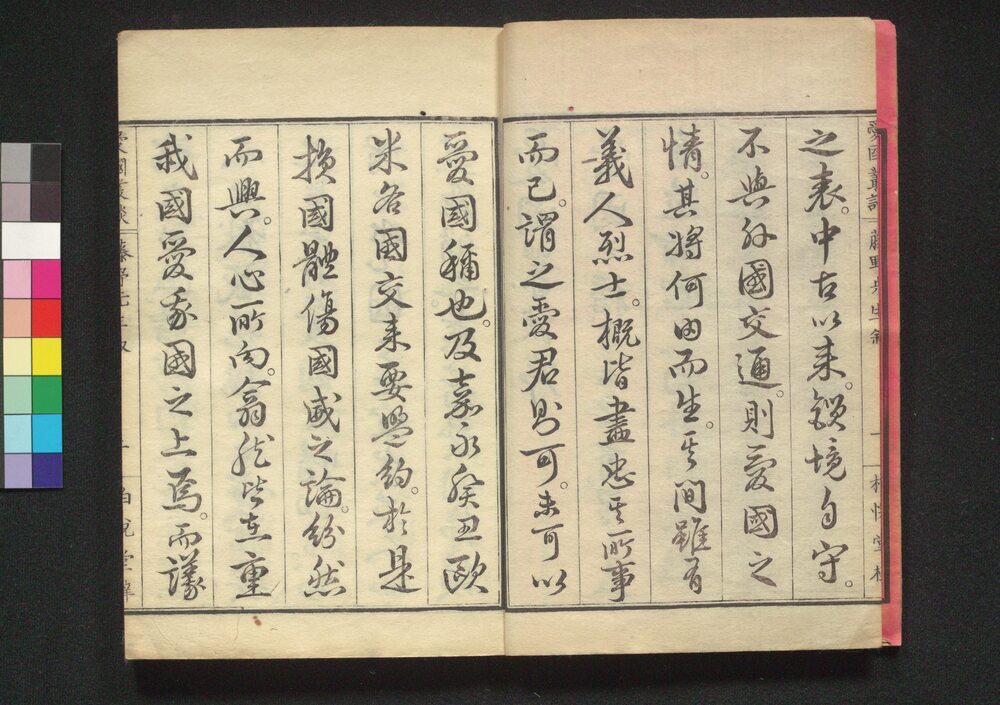 之表。中古以来。鎖境自守。
不與外國交通。則愛國之
情。其將何由而生。其間雖有
義人烈士。概皆盡忠其所事
而已。謂之愛君則可。未可以
愛國稱也。及嘉永癸丑。歐
米各國交来要盟約。於是
損國體傷國威之論。紛然
而興。人心所向。翕然皆在重
我國愛我國之上焉。而議
愛國叢談
藤野先生叙
一